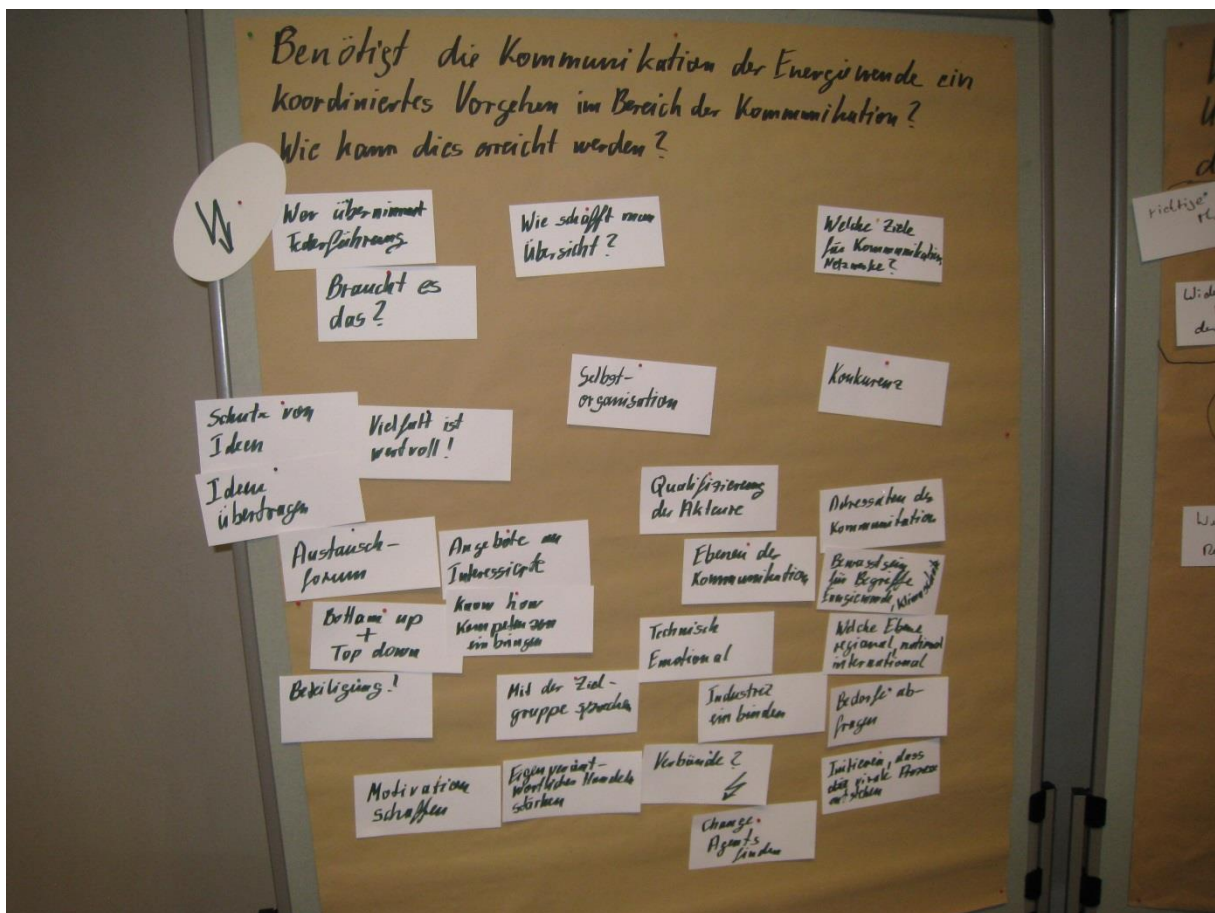 Benötigt die Kommunikation der Energiewende ein
koordiniertes Vorgehen im Bereich der Kommunikation?
Wie kann dies erreicht werden?
Wer übernimmt
Federführung
Braucht es
das?
Wie schafft man
Übersicht?
Welche Ziele
für Kommunikation,
Netzwerke?
Selbst-
organisation
Konkurenz
Schutz von
Ideen
Vielfalt ist
wertvoll!
Ideen
übertragen
Qualifizierung
der Akteure
Adressaten der
Kommunikation
Austausch-
forum
Angebote an
Interessierte
Ebenen der
Kommunikation
für Begriffe
Energiewende, Klimaschutz
Bottam up
+
Top down
Know how
Kompetenzen
einbringen
Technisch
Emotional
Welche Ebene
regional, national
international
Beteiligung!
Mit der Ziel-
gruppe sprechen
Industrie
einbinden
Bedarfe ab-
fragen
Motivation
schaffen
Eigenverant-
wortliches Handeln
stärken
Verbände?
Initiieren, dass
virale Prozesse
entstehen
Change
Agents
finden
richtige